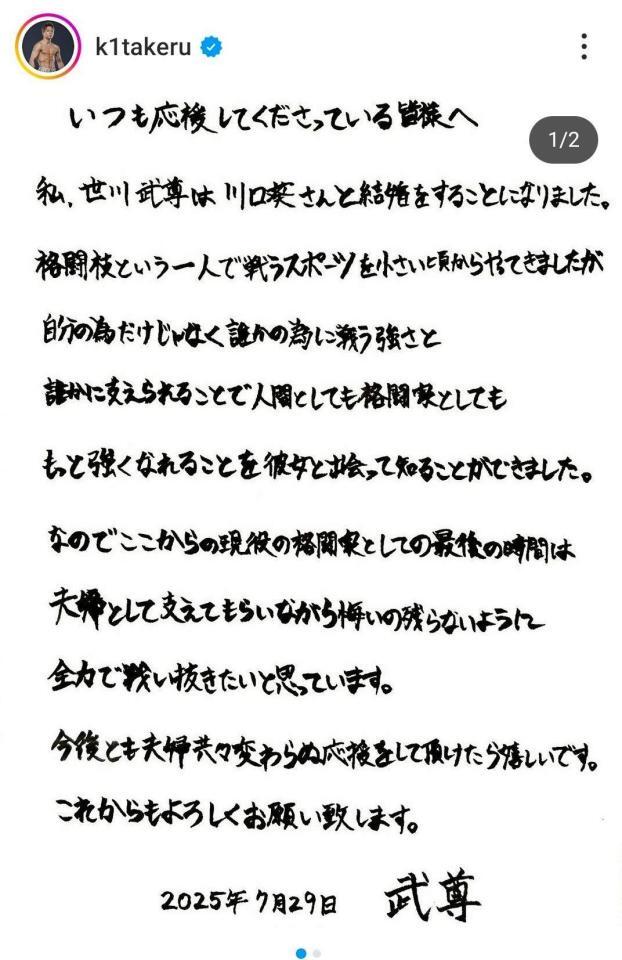 k1takeru
1/2
いつも応援してくださっている皆様へ
私、世川武尊は川口葵さんと結婚をすることになりました。
格闘技という一人で戦うスポーツを小さい頃からやってきましたが
自分の為だけじゃなく誰かの為に戦う強さと
誰かに支えられることで人間としても格闘家としても
もっと強くなれることを彼女と出会って知ることができました。
なのでここからの現役の格闘家としての最後の時間は
夫婦として支えてもらいながら悔いの残らないように
全力で戦い抜きたいと思っています。
今後とも夫婦共々変わらぬ応援をして頂けたら嬉しいです。
これからもよろしくお願い致します。
2025年7月29日 武尊